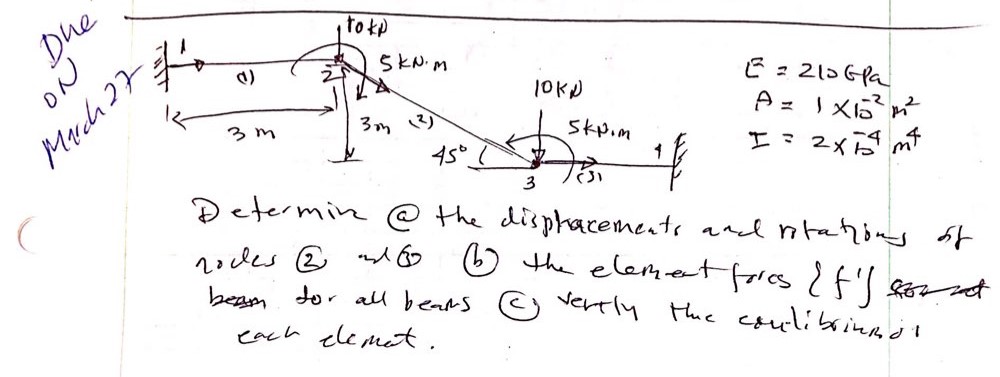 Due
ON
March 27
10 kN
5 kN.m
1
(1)
2
3 m
3 m
(2)
45°
10 kN
5 kN.m
3
(3)
4
E = 210 GPa
A = 1 × 10⁻² m²
I = 2 × 10⁻⁴ m⁴
Determine (a) the displacements and rotations of
nodes (2) and (3) (b) the element forces {f'}
beam for all beams (c) verify the equilibrium of
each element.